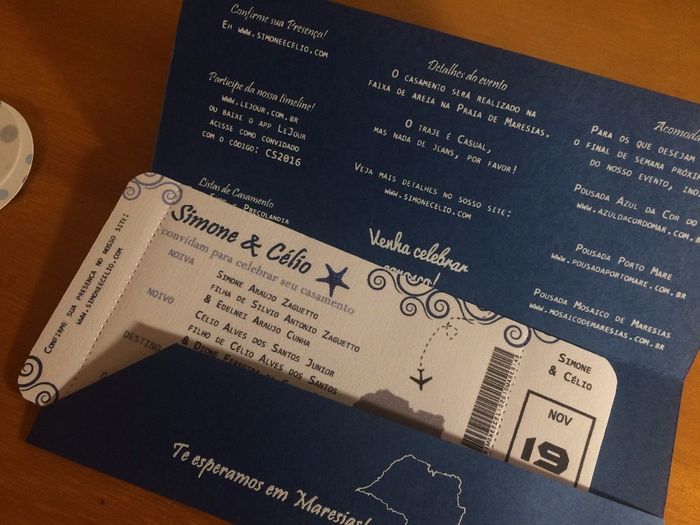 Confirme sua Presença!
Em www.simoneecelio.com
Participe da nossa timeline!
www.lejour.com.br
ou baixe o app LeJour
acisse como convidado
com o código: CS2016
Listas de Casamento
Detalhes do evento
O casamento será realizado na
faixa de areia na Praia de Maresias.
O traje é Casual,
mas nada de jeans, por favor!
Veja mais detalhes no nosso site:
www.simonecelio.com
Venha celebrar
Acomoda
Para os que desejam
o final de semana próxim
do nosso evento, in
Pousada Azul da Cor do
www.azuldacordomar.com.b
Pousada Porto Mare
www.pousadaportomare.com.br
Pousada Mosaico de Maresias
www.mosaicodemaresias.com.br
Confirme sua presença no nosso site:
www.simoneecelio.com
Simone & Célio
convidam para celebrar seu casamento
NOIVA
Simone Araujo Zaguetto
filha de Silvio Antonio Zaguetto
& Edelnei Araujo Cunha
NOIVO
Célio Alves dos Santos Junior
filho de Célio Alves dos Santos
DESTINO
Simone
& Célio
NOV
19
Te esperamos em Maresias!